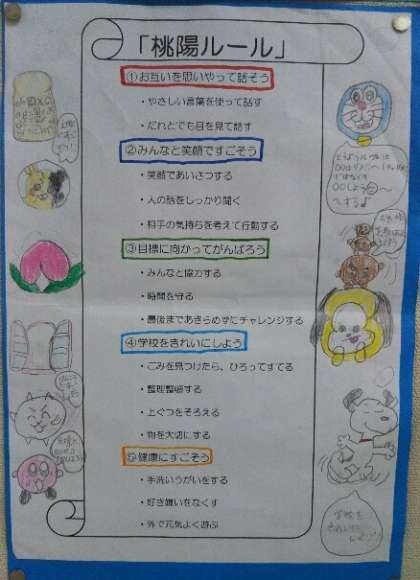 「桃陽ルール」
①お互いを思いやって話そう
・やさしい言葉を使って話す
・だれとでも目を見て話す
②みんなと笑顔ですごそう
・笑顔であいさつする
・人の話をしっかり聞く
・相手の気持ちを考えて行動する
③目標に向かってがんばろう
・みんなと協力する
・時間を守る
・最後まであきらめずにチャレンジする
④学校をきれいにしよう
・ごみを見つけたら、ひろってすてる
・整理整頓する
・上ぐつをそろえる
・物を大切にする
⑤健康にすごそう
・手洗いうがいをする
・好き嫌いをなくす
・外で元気よく遊ぶ
学校を